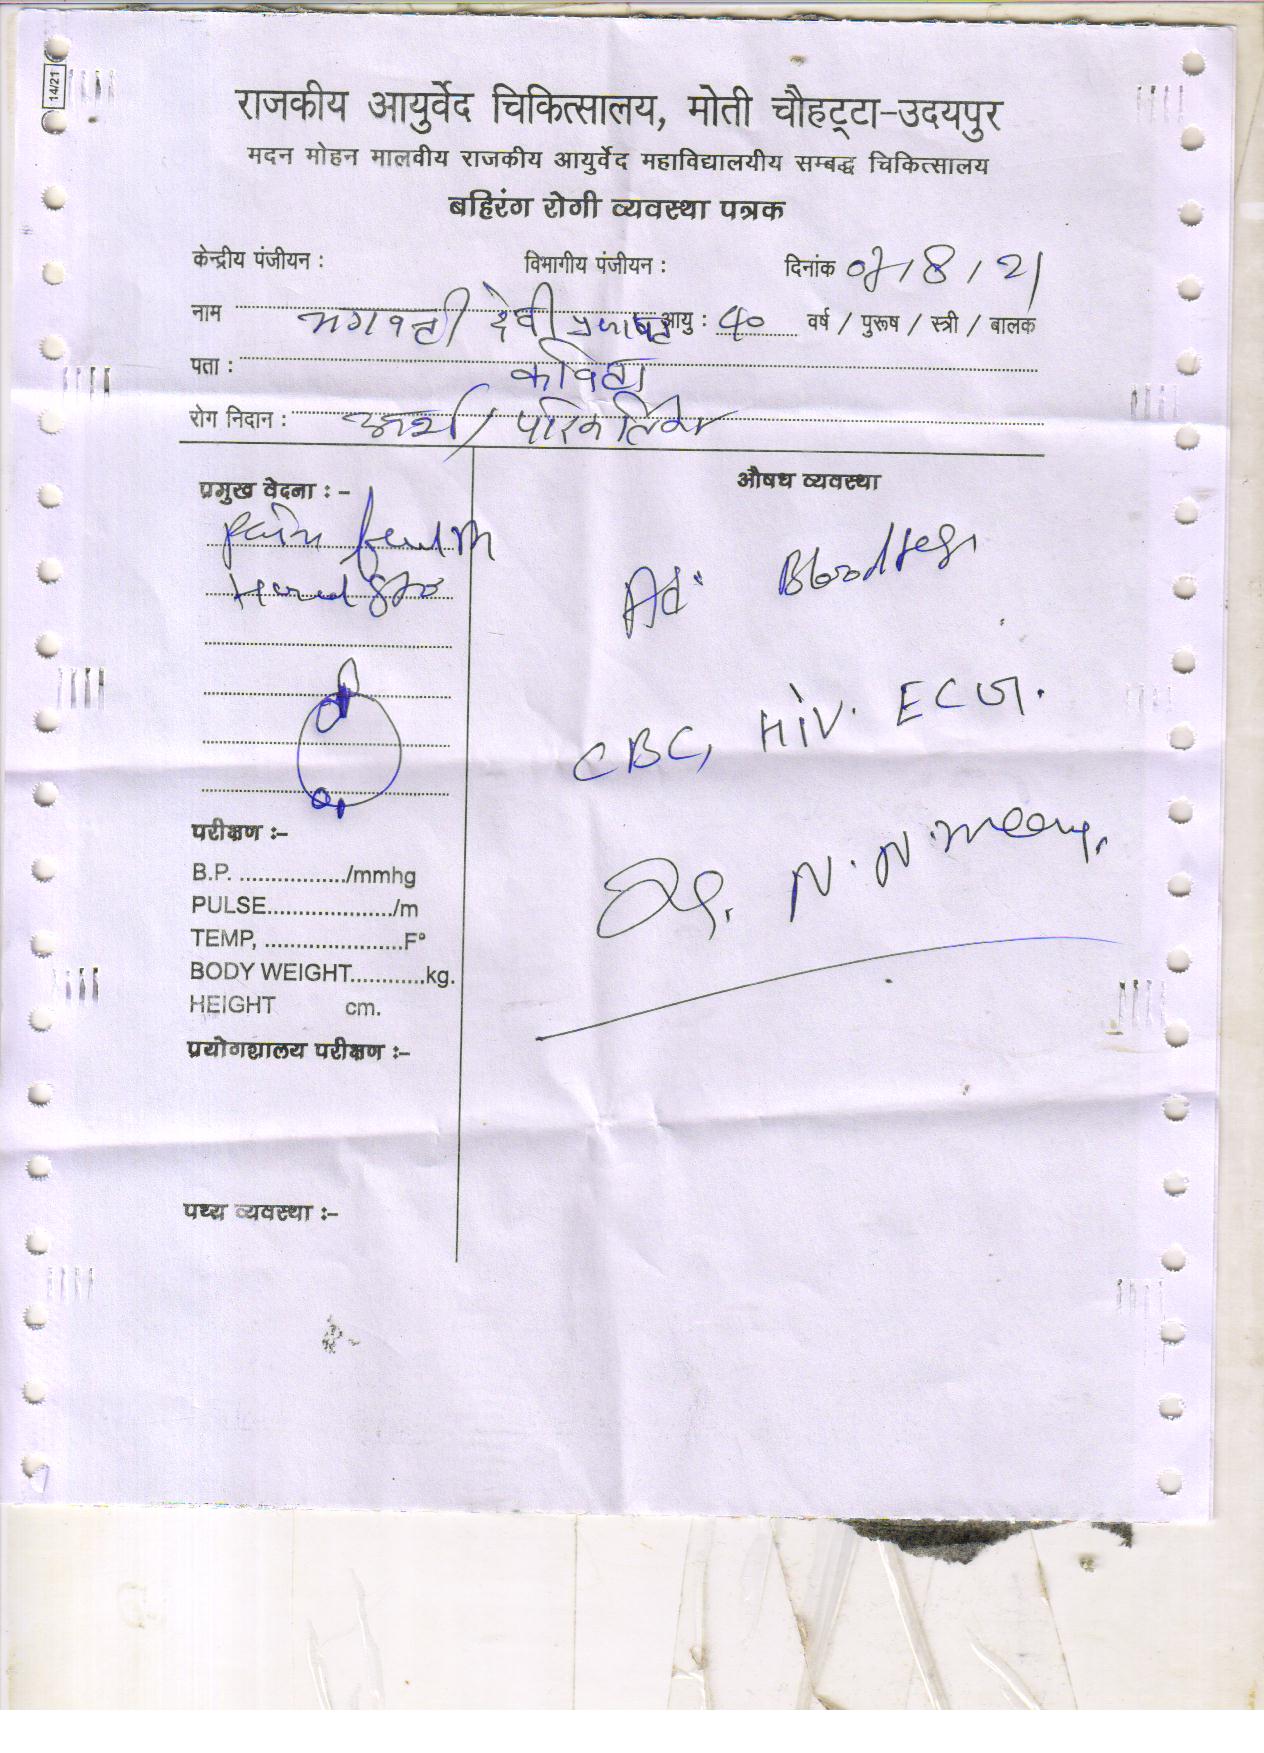 14/21
राजकीय आयुर्वेद चिकित्सालय, मोती चौहट्टा-उदयपुर
मदन मोहन मालवीय राजकीय आयुर्वेद महाविद्यालयीय सम्बद्ध चिकित्सालय
बहिरंग रोगी व्यवस्था पत्रक
केन्द्रीय पंजीयन : विभागीय पंजीयन : दिनांक 07/8/21
नाम भगवती देवी आयु : 40 वर्ष / पुरूष / स्त्री / बालक
पता : कविता
रोग निदान : अर्श / परिकर्तिका
प्रमुख वेदना : -
pain
Hard
परीक्षण :-
B.P. ................/mmhg
PULSE...................../m
TEMP, .......................F°
BODY WEIGHT............kg.
HEIGHT cm.
प्रयोगशालय परीक्षण :-
पथ्य व्यवस्था :-
औषध व्यवस्था
Ad: Blood
CBC, HIV. ECG.
Dr. N. N. Meena